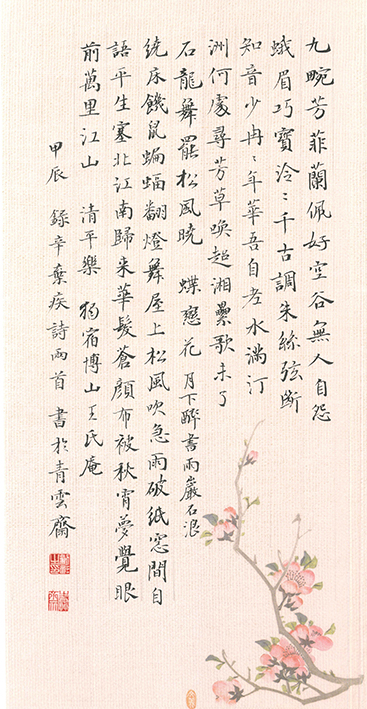 九畹芳菲蘭佩好空谷無人自怨
蛾眉巧寶泠〻千古調朱絲弦斷
知音少冉〻年華吾自老水滿汀
洲何處尋芳草喚起湘纍歌未了
石龍舞罷松風曉 蝶戀花 月下醉書雨巖石浪
繞床饑鼠蝙蝠翻燈舞屋上松風吹急雨破紙窓間自
語平生塞北江南歸來華髮蒼顏布被秋宵夢覺眼
前萬里江山 清平樂 獨宿博山王氏庵
甲辰 錄辛棄疾詩兩首 書於青雲齋